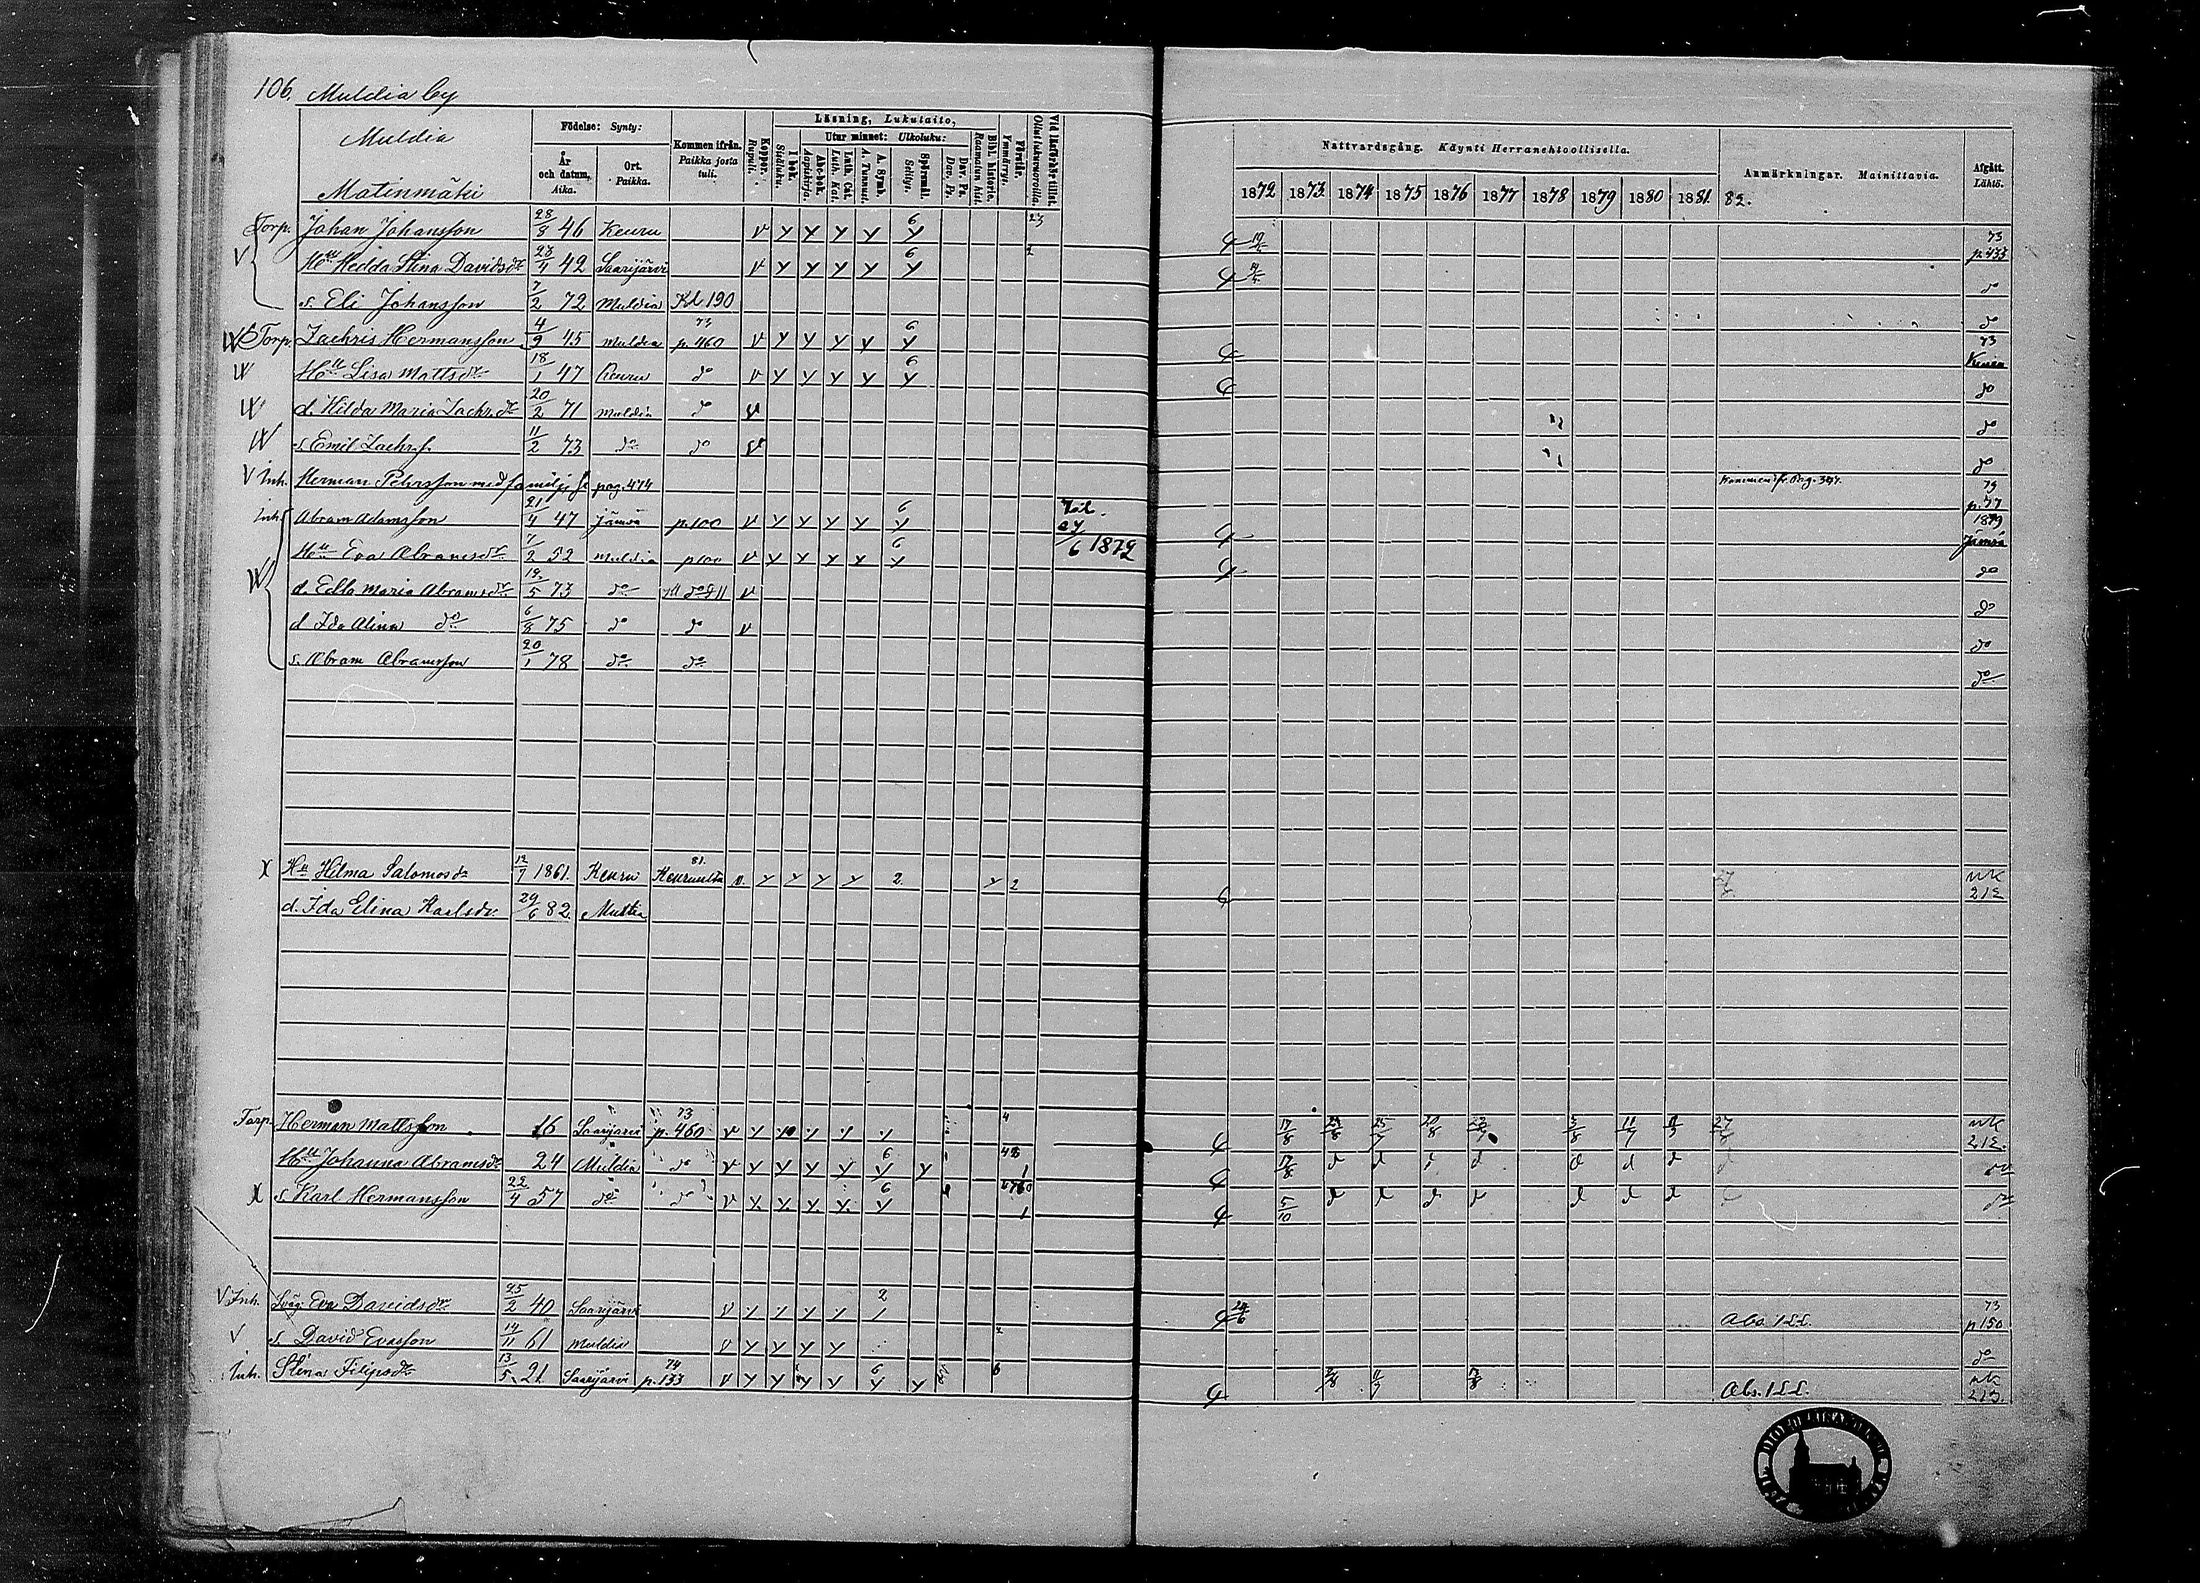 106. Muldia by
Muldia
Matinmäki
Födelse: Synty:
År och datum, Aika.
Ort. Paikka.
Kommen ifrån. Paikka josta tuli.
Koppor. Rupuli.
Läsning, Lukutaito,
I bok. Sisäluku.
Utur minnet: Ulkoluku:
Abc-bok. Aapiskirja.
Luth. Cat. Luth. Kat.
A. Symb. A. Tunnust.
Spörsmål. Selitys.
Dav. Ps. Dav. Ps.
Bibl. historie. Raamatun hist.
Förstår. Ymmärrys.
Vid läsförhör tillst. Ollut lukuvuorolla.
Nattvardsgång. Käynti Herranehtoollisella.
1872 1873 1874 1875 1876 1877 1878 1879 1880 1881 82.
Anmärkningar. Mainittavia.
Afgått. Lähtö.
Torp. Johan Johansson 28/8 46 Keuru v y y y y 6 y 23 73 p. 433
V Hu Hedda Stina Davidsdr 23/4 42 Saarijärvi v y y y y 6 y do
s. Eli Johansson 7/2 72 Muldia Kd 190 do
Torp. Zachris Hermansson 4/9 45 Muldia 73 p. 460 v y y y y 6 y 73 Keuru
Hu Lisa Mattsdr 18/1 47 Keuru do v y y y y 6 y do
d. Hilda Maria Zachr. dr 20/2 71 Muldia do v do
s. Emil Zachr. s. 11/2 73 do do v do
V Inh. Herman Petersson med familj se pag. 474 Kommen fr. Pag. 347. 79 p. 77
Inh. Abram Adamsson 21/4 47 Jämsä p. 100 v y y y y 6 y 1879 Jämsä
Hu Eva Abramsdr 7/2 52 Muldia p 100 v y y y y 6 y 6 1879 do
d. Edla Maria Abramsdr 19/5 73 do v do
d Ida Alina do 6/8 75 do do v do
s. Abram Abramsson 20/1 78 do do do
X Hu Hilma Salomosdr 12/7 1861. Keuru 81. Keuruulta v. y y y y 2. y 2 UK 212
d. Ida Elina Karlsdr. 29/6 82. Multia
Torp. Herman Mattsson 16 Saarijärvi 73 p. 460 v y 4 17/8 25/7 11/7 27/8 UK 212.
Hu Johanna Abramsdr 24 Muldia do v y y y y 6 y y 1 17/8 do
X s. Karl Hermansson 22/4 57 do do v y y y y 6 y 1 5/10 do
V Inh. Eva Davidsdr 25/2 40 Saarijärvi v y y y y 2 Abs. 1 ££. 73 p 150
V s. David Evasson 14/11 61 Muldia v y y y y do
Inh. Stina Filipsdr 13/5 21. Saarijärvi 74 p. 133 v y y y y 6 y y 6 Abs. 1 ££. UK 213.